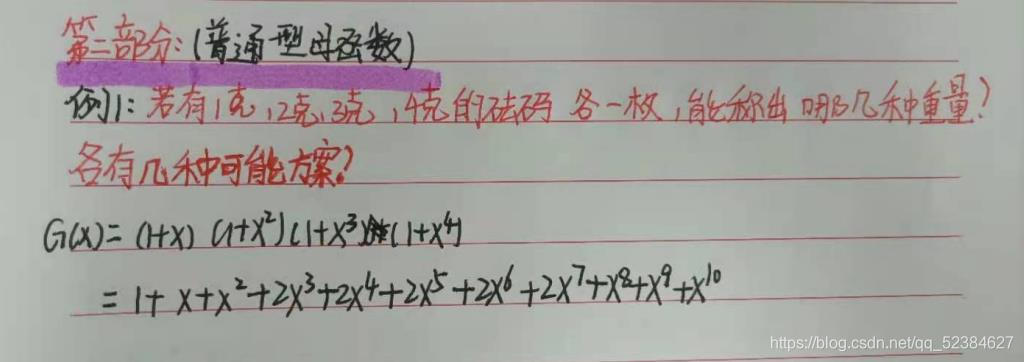 第二部分:(普通型母函数)
例1:若有1克,2克,3克,4克的砝码 各一枚,能称出哪几种重量?
各有几种可能方案?
G(x)= (1+x) (1+x²)(1+x³)(1+x⁴)
= 1+x+x²+2x³+2x⁴+2x⁵+2x⁶+2x⁷+x⁸+x⁹+x¹⁰
https://blog.csdn.net/qq_52384627